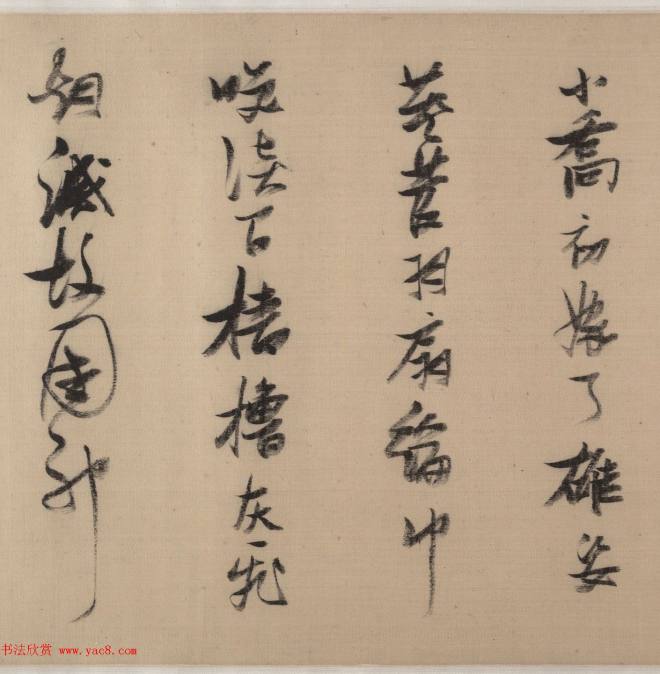 小喬初嫁了雄姿
英發羽扇綸巾
咲談間檣櫓灰飛
烟滅故國神
书法欣赏 www.yac8.com